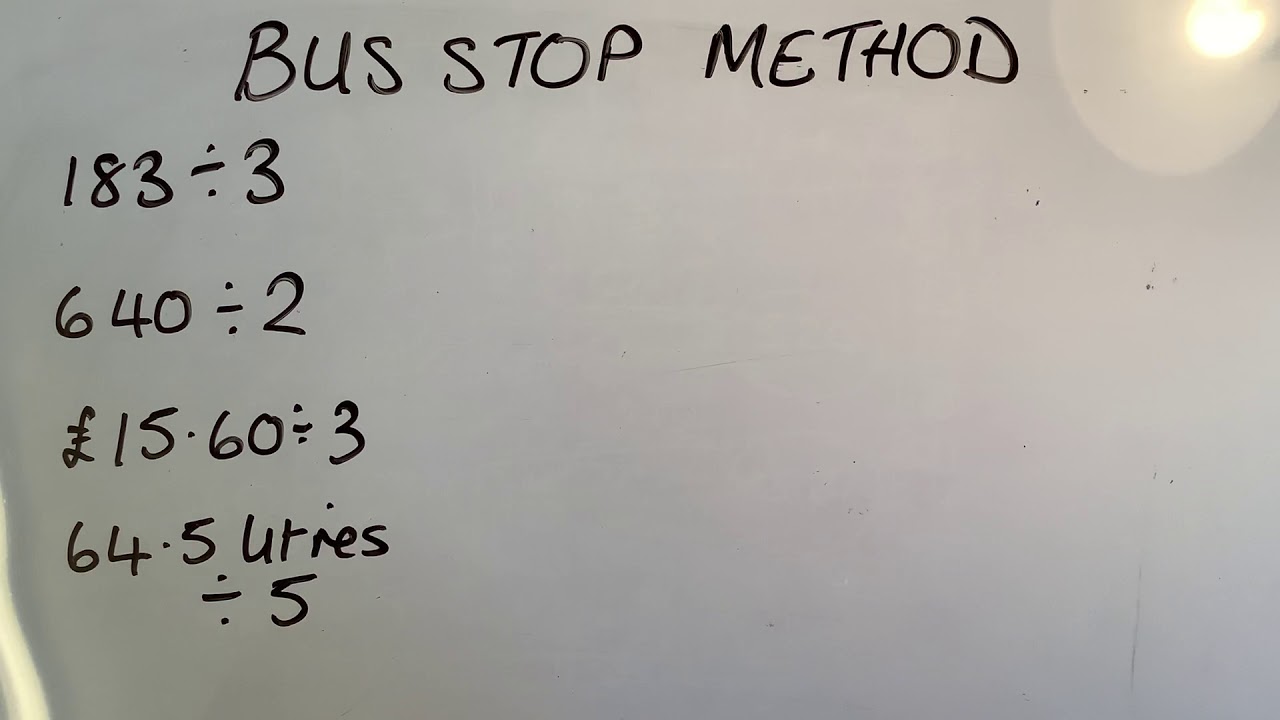 BUS STOP METHOD
183÷3
640÷2
£15·60÷3
64·5 litres
÷5